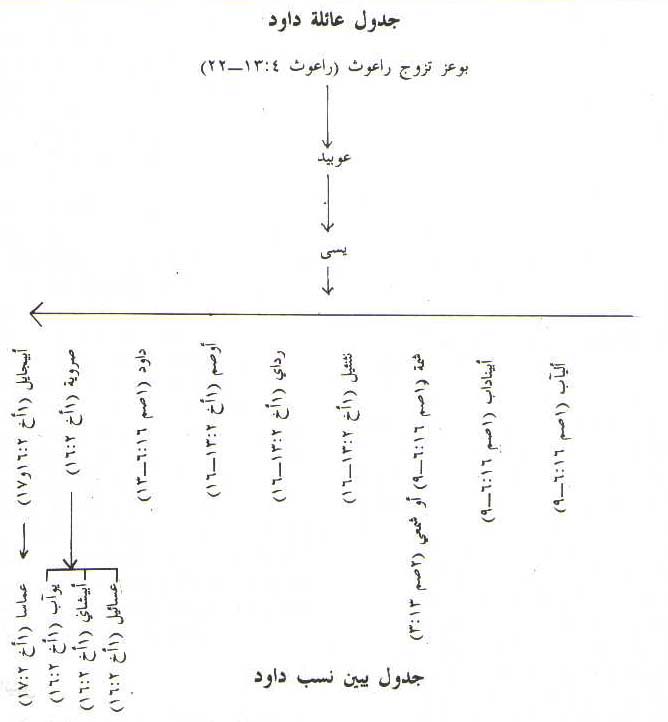 جدول عائلة داود
بوعز تزوج راعوث (راعوث ٤:١٣—٢٢)
عوبيد
يسى
أليآب (١صم ١٦:٦—٩)
أبيناداب (١صم ١٦:٦—٩)
شمة (١صم ١٦:٦—٩) أو شمعي (٢صم ١٣:٣)
نثنئيل (١أخ ٢:١٣—١٦)
رداي (١أخ ٢:١٣—١٦)
أوصم (١أخ ٢:١٣—١٦)
داود (١صم ١٦:٦—١٣)
صروية (١أخ ٢:١٦)
أبيجايل (١أخ ٢:١٦و١٧)
عسائيل (١أخ ٢:١٦)
أبيشاي (١أخ ٢:١٦)
يوآب (١أخ ٢:١٦)
عماسا (١أخ ٢:١٧)
جدول يبين نسب داود